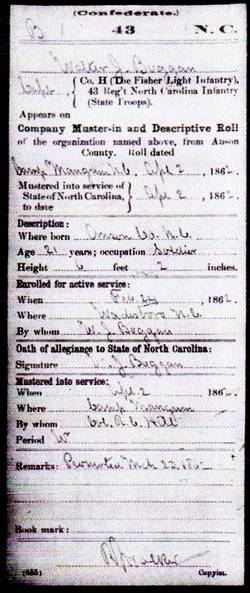 (Confederate.)
B 43 N. C.
Walter J. Boggan
Co. H (The Fisher Light Infantry),
43 Reg't North Carolina Infantry
(State Troops).
Appears on
Company Muster-in and Descriptive Roll
of the organization named above, from Anson
County. Roll dated
Camp Mangum N.C. Apl 2, 1862
Mustered into service of
State of North Carolina, Apl 2, 1862
to date
Description:
Where born Anson Co. N.C.
Age 21 years; occupation Soldier
Height 6 feet 2 inches.
Enrolled for active service:
When Feb. 1862.
Where Wadesboro N.C.
By whom W. J. Boggan
Oath of allegiance to State of North Carolina:
Signature J Boggan
Mustered into service:
When Apl 2, 1862.
Where Camp Mangum
By whom Col. R. C. Hill
Period W
Remarks: Promoted Mch 22
Book mark:
(655) Copyist.